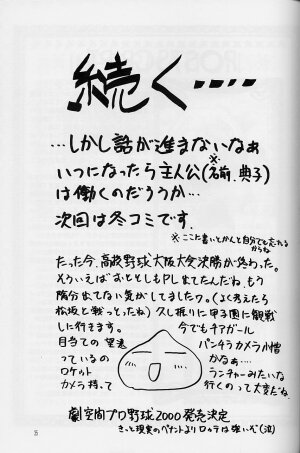 続く‥‥
…しかし話が進まないなぁ
いつになったら主人公(※名前、典子)
は働くのだろうか…
次回は冬コミです。
※ここに書いとかんと自分でも忘れる
からね
たった今、高校野球大阪大会決勝が終わった。
そういえばおととしもPL出てたんだね。もう
随分出てない気がしてましたワ。(よく考えたら
松坂と戦っとったね)久し振りに甲子園に観戦
しに行きます。
今でもチアガール
目当ての望遠
パンチラカメラ小僧
っているの
かなぁ…
ロケット
ランチャーみたいな
カメラ持って
行くのって大変だね。
劇空間プロ野球2000発売決定
きっと現実のペナントよりロッテは強いぞ(泣)
35